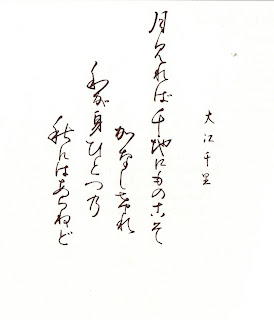 大江千里
月見れば千地にものこそ
かなしけれ
わが身ひとつの
秋にはあらねど